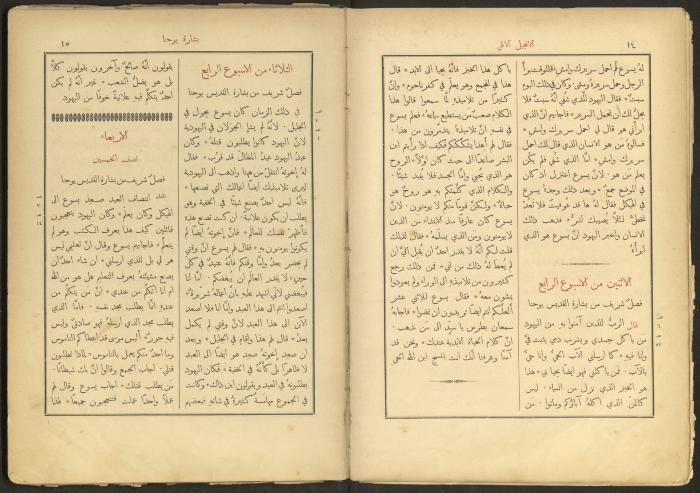 ١٤
الانجيل الالهي
لهُ يسوع قم احمل سريرك وامشِ * فللوقت برأَ
الرجل وحمل سريرهُ ومشى * وكان في ذلك اليوم
سبتٌ * فقال اليهود للذي شُفي انهُ سبتٌ فلا
يحلُّ لك أن تحمل السرير * فاجابهم انَّ الذي
ابرأَني هو قال لي احمل سريرك وامشِ *
فسألوهُ مَن هو الانسان الذي قال لك احمل
سريرك وامشِ * امَّا الذي شُفي فلم يكن
يعلم مَن هو * لانَّ يسوع اعتزل اذ كان
في الموضع جمعٌ * وبعد ذلك وجدهُ يسوع
في الهيكل فقال لهُ ها قد عوفيت فلا تعُد
تخطئُ لئلَّا يصيبك اشرُّ * فذهب ذلك
الانسان واخبر اليهود انَّ يسوع هو الذي
ابرأَهُ
الاثنين من الاسبوع الرابع
فصلٌ شريف من بشارة القديس يوحنا
قال الربُّ للذين آمنوا بهِ من اليهود
مَن يأكل جسدي ويشرب دمي يثبت فيَّ
وانا فيهِ * كما ارسلني الآب الحيُّ وانا حيٌّ
بالآب * فمن يأكلني فهو ايضًا يحيا بي * هذا
هو الخبز الذي نزل من السماء * ليس
كالمنّ الذي اكلهُ آباؤُكم وماتوا * مَن
يأكل هذا الخبز فانَّهُ يحيا الى الابد * قال
هذا في المجمع وهو يعلّم في كفرناحوم * وانَّ
كثيرًا من تلاميذهِ لمَّا سمعوا قالوا هذا
الكلام صعبٌ من يستطيع سماعهُ * فعلم يسوع
في نفسهِ انَّ تلاميذهُ يتذمَّرون من هذا *
فقال لهم أَهذا يشكّككم * فكيف اذا رأَيتم ابن
البشر صاعدًا الى حيث كان اوَّلًا * الروح
هو الذي يحيي وامَّا الجسد فلا يفيد شيئًا *
والكلام الذي كلَّمتكم بهِ هو روحٌ هو
حياة * ولكنَّ قومًا منكم لا يؤمنون * لانَّ
يسوع كان عارفًا منذ الابتداء مَن الذين
لا يؤمنون ومَن الذي يسلّمهُ * فقال لهذا
قلت لكم أنَّهُ لا يقدر احدٌ ان يُقبل اليَّ ان
لم يُعطَ لهُ ذلك من ابي * فمن ذلك رجع
كثيرون من تلاميذهِ الى الوراء ولم يعودوا
يمشون معهُ * فقال يسوع للاثني عشر
ألعلَّكم انتم ايضًا تريدون ان تمضوا * فاجابهُ
سمعان بطرس يا سيّد الى مَن نذهب *
انَّ كلام الحياة الابدية عندك * ونحن قد
آمنَّا وعرفنا أنك انت المسيح ابن الله الحي
بشارة يوحنا
١٥
الثلاثاء من الاسبوع الرابع
فصلٌ شريف من بشارة القديس يوحنا
في ذلك الزمان كان يسوع يجول في
الجليل * لانَّهُ لم يشإِ الجولان في اليهودية
لانَّ اليهود كانوا يطلبون قتلهُ * وكان
عيدُ اليهود عيدُ المظالّ قد قرب * فقال
لهُ اخوتهُ انتقل من هنا واذهب الى اليهودية
ليرى تلاميذك ايضًا اعمالك التي تصنعها *
فانَّهُ ليس احدٌ يصنع شيئًا في الخفية وهو
يطلب ان يكون علانيةً * ان كنت تصنع هذه
فأَظهر نفسك للعالم * فانَّ اخوتهُ ايضًا لم
يكونوا يؤمنون بهِ * فقال لهم يسوع انَّ وقتي
لم يحضر بعدُ وامَّا وقتكم فانَّهُ عتيدٌ في كلّ
حين * لا يقدر العالم أن يُبغضكم * امَّا انا
فيبغضني لاني اشهد عليهِ بأنَّ اعمالهُ شريرة *
اصعدوا انتم الى هذا العيد وامَّا انا فلا اصعد
الآن الى هذا العيد لانَّ وقتي لم يكمل
بعدُ * قال لهم هذا وأقام في الجليل * وبعد
أن صعد اخوتهُ صعد هو ايضًا الى العيد
لا ظاهرًا بل كأَنَّهُ في الخفية * فكان اليهود
يطلبونهُ في العيد ويقولون اين ذاك * وكانت
في الجموع مهامسةٌ كثيرة في شانهِ فبعضهم
يقولون انَّهُ صالحٌ وآخرون يقولون كلَّا
بل هو يضلُّ الشعب * غير انَّهُ لم يكن
احدٌ يتكلَّم فيهِ علانيةً خوفًا من اليهود
الاربعاء
نصف الخمسين
فصلٌ شريف من بشارة القديس يوحنا
عند انتصاف العيد صعد يسوع الى
الهيكل وكان يعلّم * وكان اليهود يتعجبون
قائلين كيف هذا يعرف الكتب وهو لم
يتعلَّم * فاجابهم يسوع وقال انَّ تعليمي ليس
هو لي بل للذي ارسلني * ان شاء احدٌ ان
يصنع مشيئتهُ يعرف التعليم هل هو من الله
ام انا اتكلَّم من عندي * انَّ مَن يتكلَّم من
عندهِ انَّما يطلب مجد نفسهِ * فامَّا الذي
يطلب مجد الذي ارسلهُ فهو صادقٌ وليس
فيهِ جورٌ * أليس موسى قد اعطاكم الناموس
وما احدٌ منكم يعمل بالناموس * لماذا تطلبون
قتلي * اجاب الجمع وقالوا انَّ بك شيطانًا *
مَن يطلب قتلك * اجاب يسوع وقال لهم
عملًا واحدًا عملت فتتعجبون جميعًا * لهذا